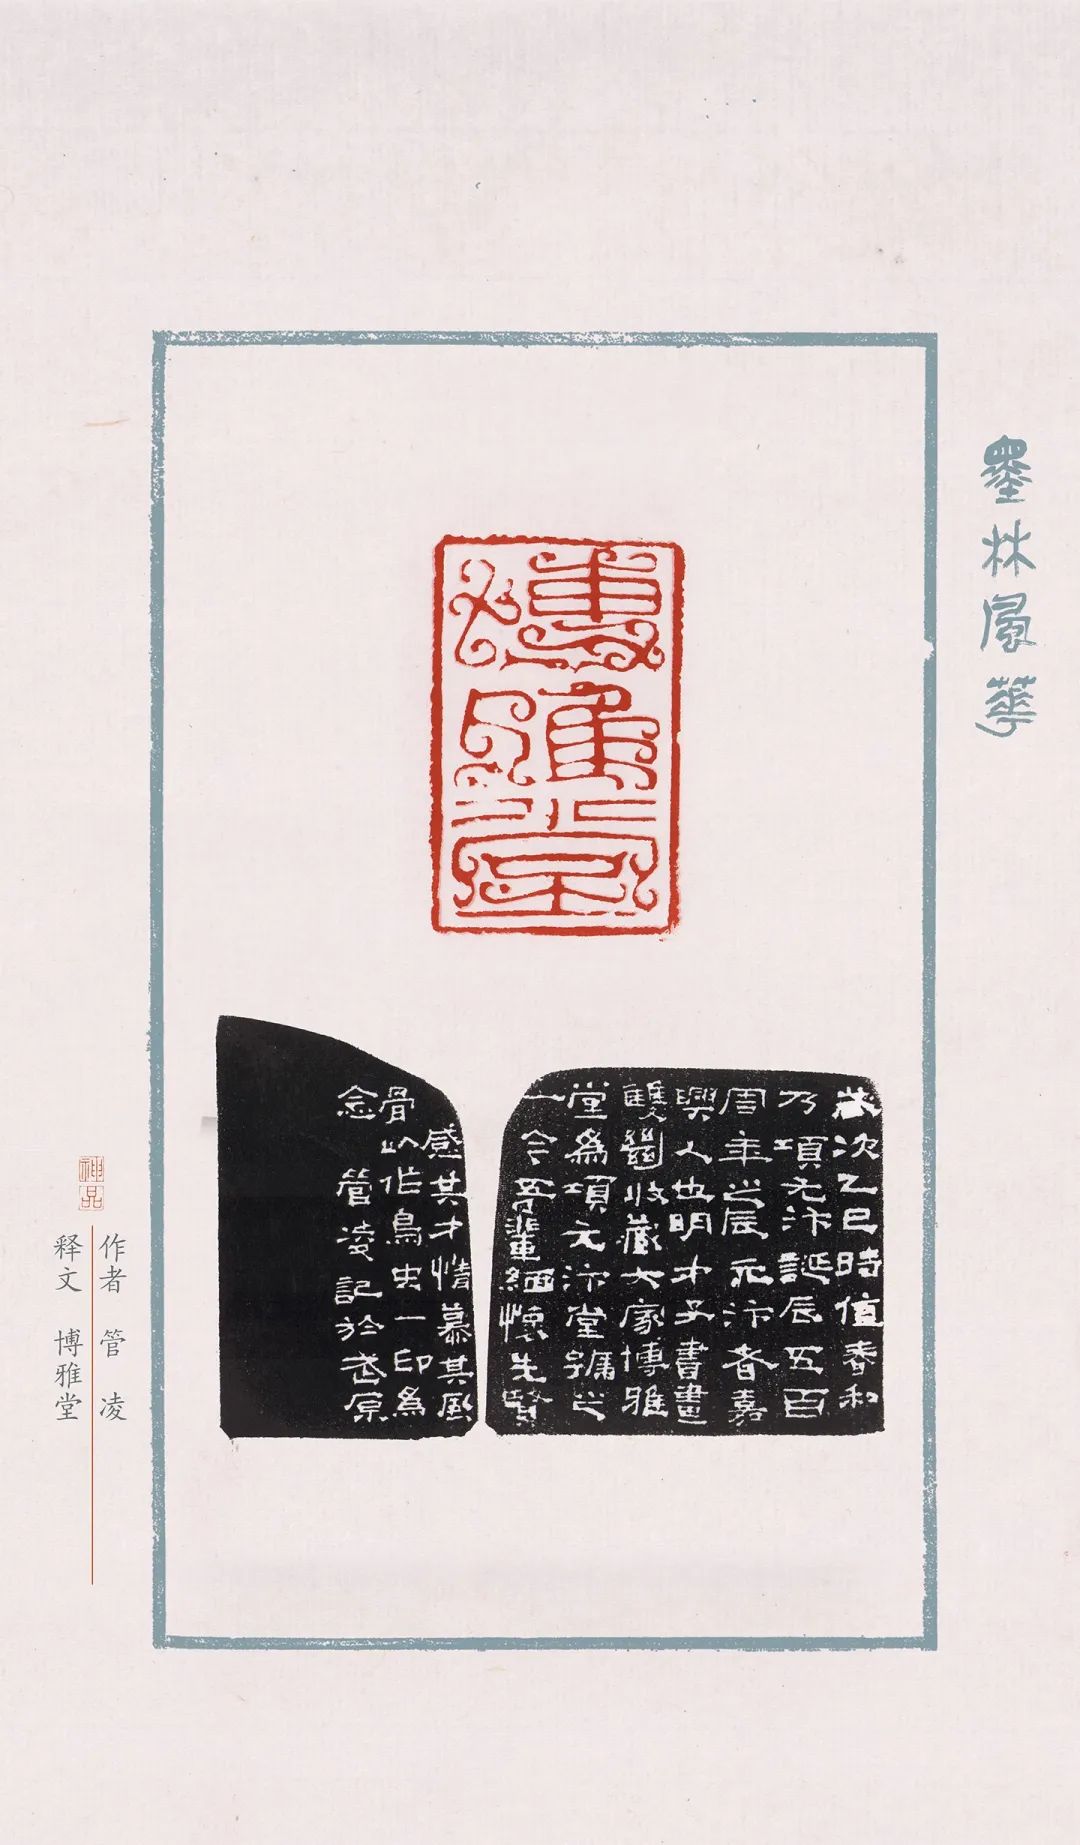 墨林風華
博雅堂
歲次乙巳時值春和
乃項元汴誕辰五百
周年之辰元汴者嘉
興人也明才子書畫
雙絕收藏大家博雅
堂為項元汴堂號之
一今吾輩緬懷先賢
感其才情慕其風
骨以作鳥虫一印為
念 管凌記於武原
神品
作者 管凌
释文 博雅堂